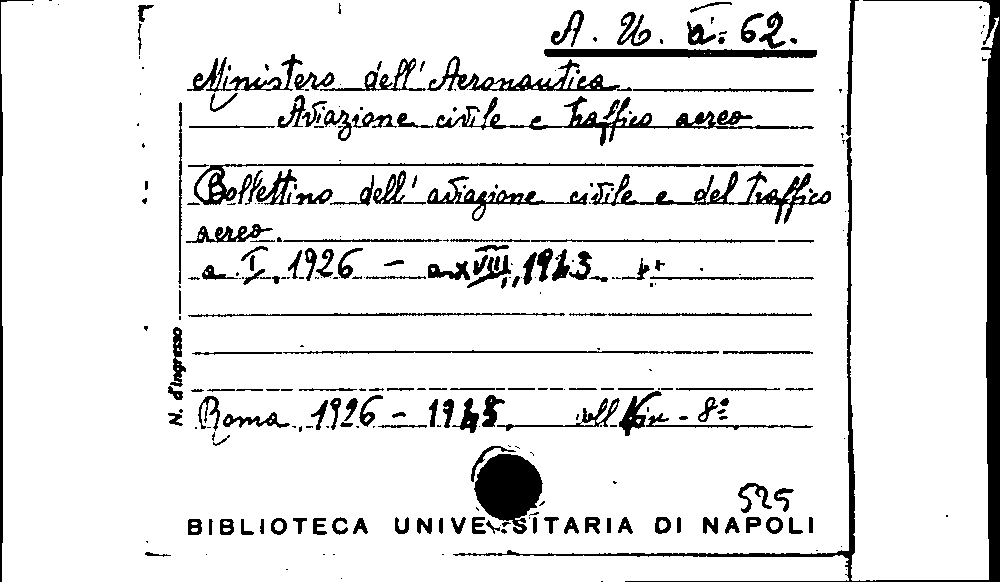 A. U. a. 62.
Ministero dell'Aeronautica
Aviazione civile e traffico aereo
Bollettino dell'aviazione civile e del traffico
aereo.
a I, 1926 – a XVIII, 1943.
N. d'Ingresso
Roma, 1926 – 1943. - 8º
525
BIBLIOTECA UNIVERSITARIA DI NAPOLI